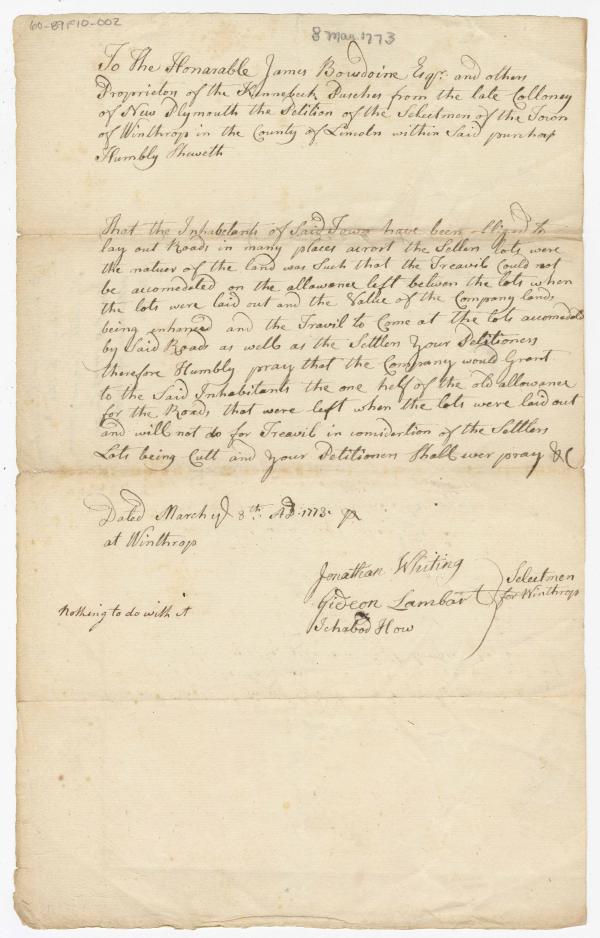 60-89F10-002
8 Mar 1773
To The Honarable James Bowdoine Esqr. and others
Proprietors of the Kinnebeck Purches from the late Colloney
of New Plymouth the Petition of the Selectmen of the Town
of Winthrop in the County of Lincoln within Said purchas
Humbly Sheweth
That the Inhabetants of Said Town have been obliged to
lay out Roads in many places acrost the Setlers lots were
the natuer of the land was Such that the Treavil Could not
be accomedated on the allowance left betwen the lots when
the lots were laid out and the Value of the Company lands
being enhanced and the Travil to Come at the lots accomedated
by Said Roads as well as the Settlers Your Petitioners
therefore Humbly pray that the Company would Grant
to the Said Inhabitants the one half of the old allowance
for the Roads that were left when the lots were laid out
and will not do for Treavil in considertion of the Settlers
Lots being Cutt and your Petitioners Shall ever pray &C
Dated March ye 8th. AD. 1773.
at Winthrop
Jonathan Whiting
Gideon Lambart
Ichabod How
Selectmen
for Winthrop
Nothing to do with it